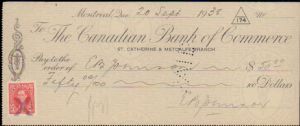 Montreal, Que 20 Sept 1938 No
174
To The Canadian Bank of Commerce
ST. CATHERINE & METCALFE BRANCH
Pay to the
order of E B Johnson $ 50.00
Fifty 00/100 Dollars
E B Johnson